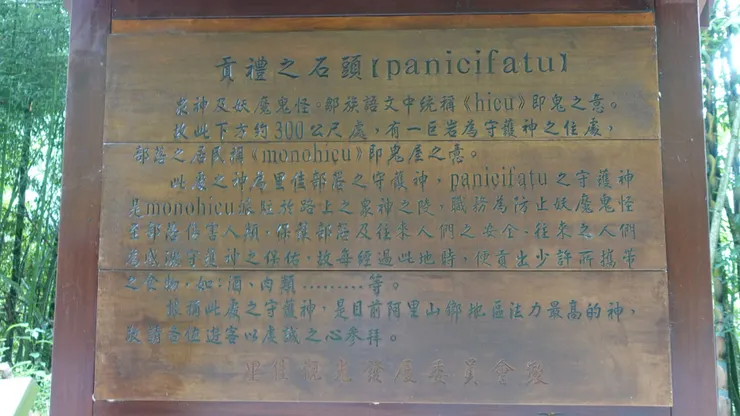 貢禮之石頭【panicifatu】
眾神及妖魔鬼怪。鄒族語文中統稱《hicu》即鬼之意。
故此下方約300公尺處，有一巨岩為守護神之住處，
部落之居民稱《monohicu》即鬼屋之意。
此處之神為里佳部落之守護神，panicifatu之守護神
是monohicu派駐於路上之眾神之 職務為防止妖魔鬼怪
至部落傷害人類，保 部落及往來人們之安全，往來之人們
守護神之保佑，故每經過此地時，便貢出少許所攜帶
之食物，如：酒，肉類………等。
據稱此處之守護神，是目前阿里山鄉地區法力最高的神，
故請各位遊客以虔誠之心參拜。
里佳觀光發展委員會製